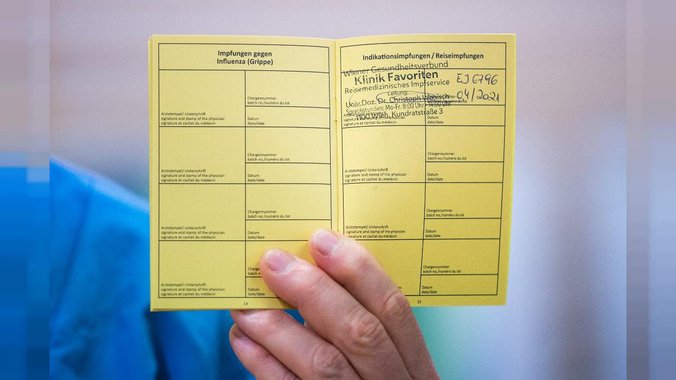 Impfungen gegen
Influenza (Grippe)
Chargennummer
batch no./numéro du lot
Arztstempel/ Unterschrift
signature and stamp of the physician
signature et cachet du médecin
Datum
date/date
Chargennummer
batch no./numéro du lot
Arztstempel/ Unterschrift
signature and stamp of the physician
signature et cachet du médecin
Datum
date/date
Chargennummer
batch no./numéro du lot
Arztstempel/ Unterschrift
signature and stamp of the physician
signature et cachet du médecin
Datum
date/date
batch
Arztstempel/ Unterschrift
signature and stamp of the physician
signature et cachet du médecin
Datum
date/
14
Indikationsimpfungen / Reiseimpfungen
Wiener Gesundheitsverbund
Klinik Favoriten
Reisemedizinisches Impfservice
Leitung:
Univ.Doz. Dr. Christoph Wenisch
Sprechstunden: Mo-Fr. 8.00
1100 Wien, Kundratstraße 3
EJ 6796
04/2021
Datum
date/date
Chargennummer
batch no./numéro du lot
Arztstempel/ Unterschrift
signature and stamp of the physician
signature et cachet du médecin
Datum
date/date
Chargennummer
batch no./numéro du lot
Arztstempel/ Unterschrift
signature and stamp of the physician
signature et cachet du médecin
Datum
date/date
Chargennummer
batch no./numéro du lot
Datum
date/date